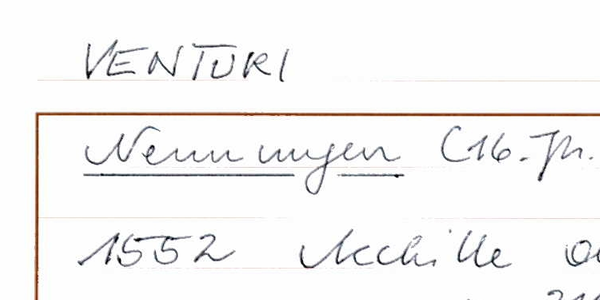 VENTURI
Nennungen (16. Jh.
1552 Achille